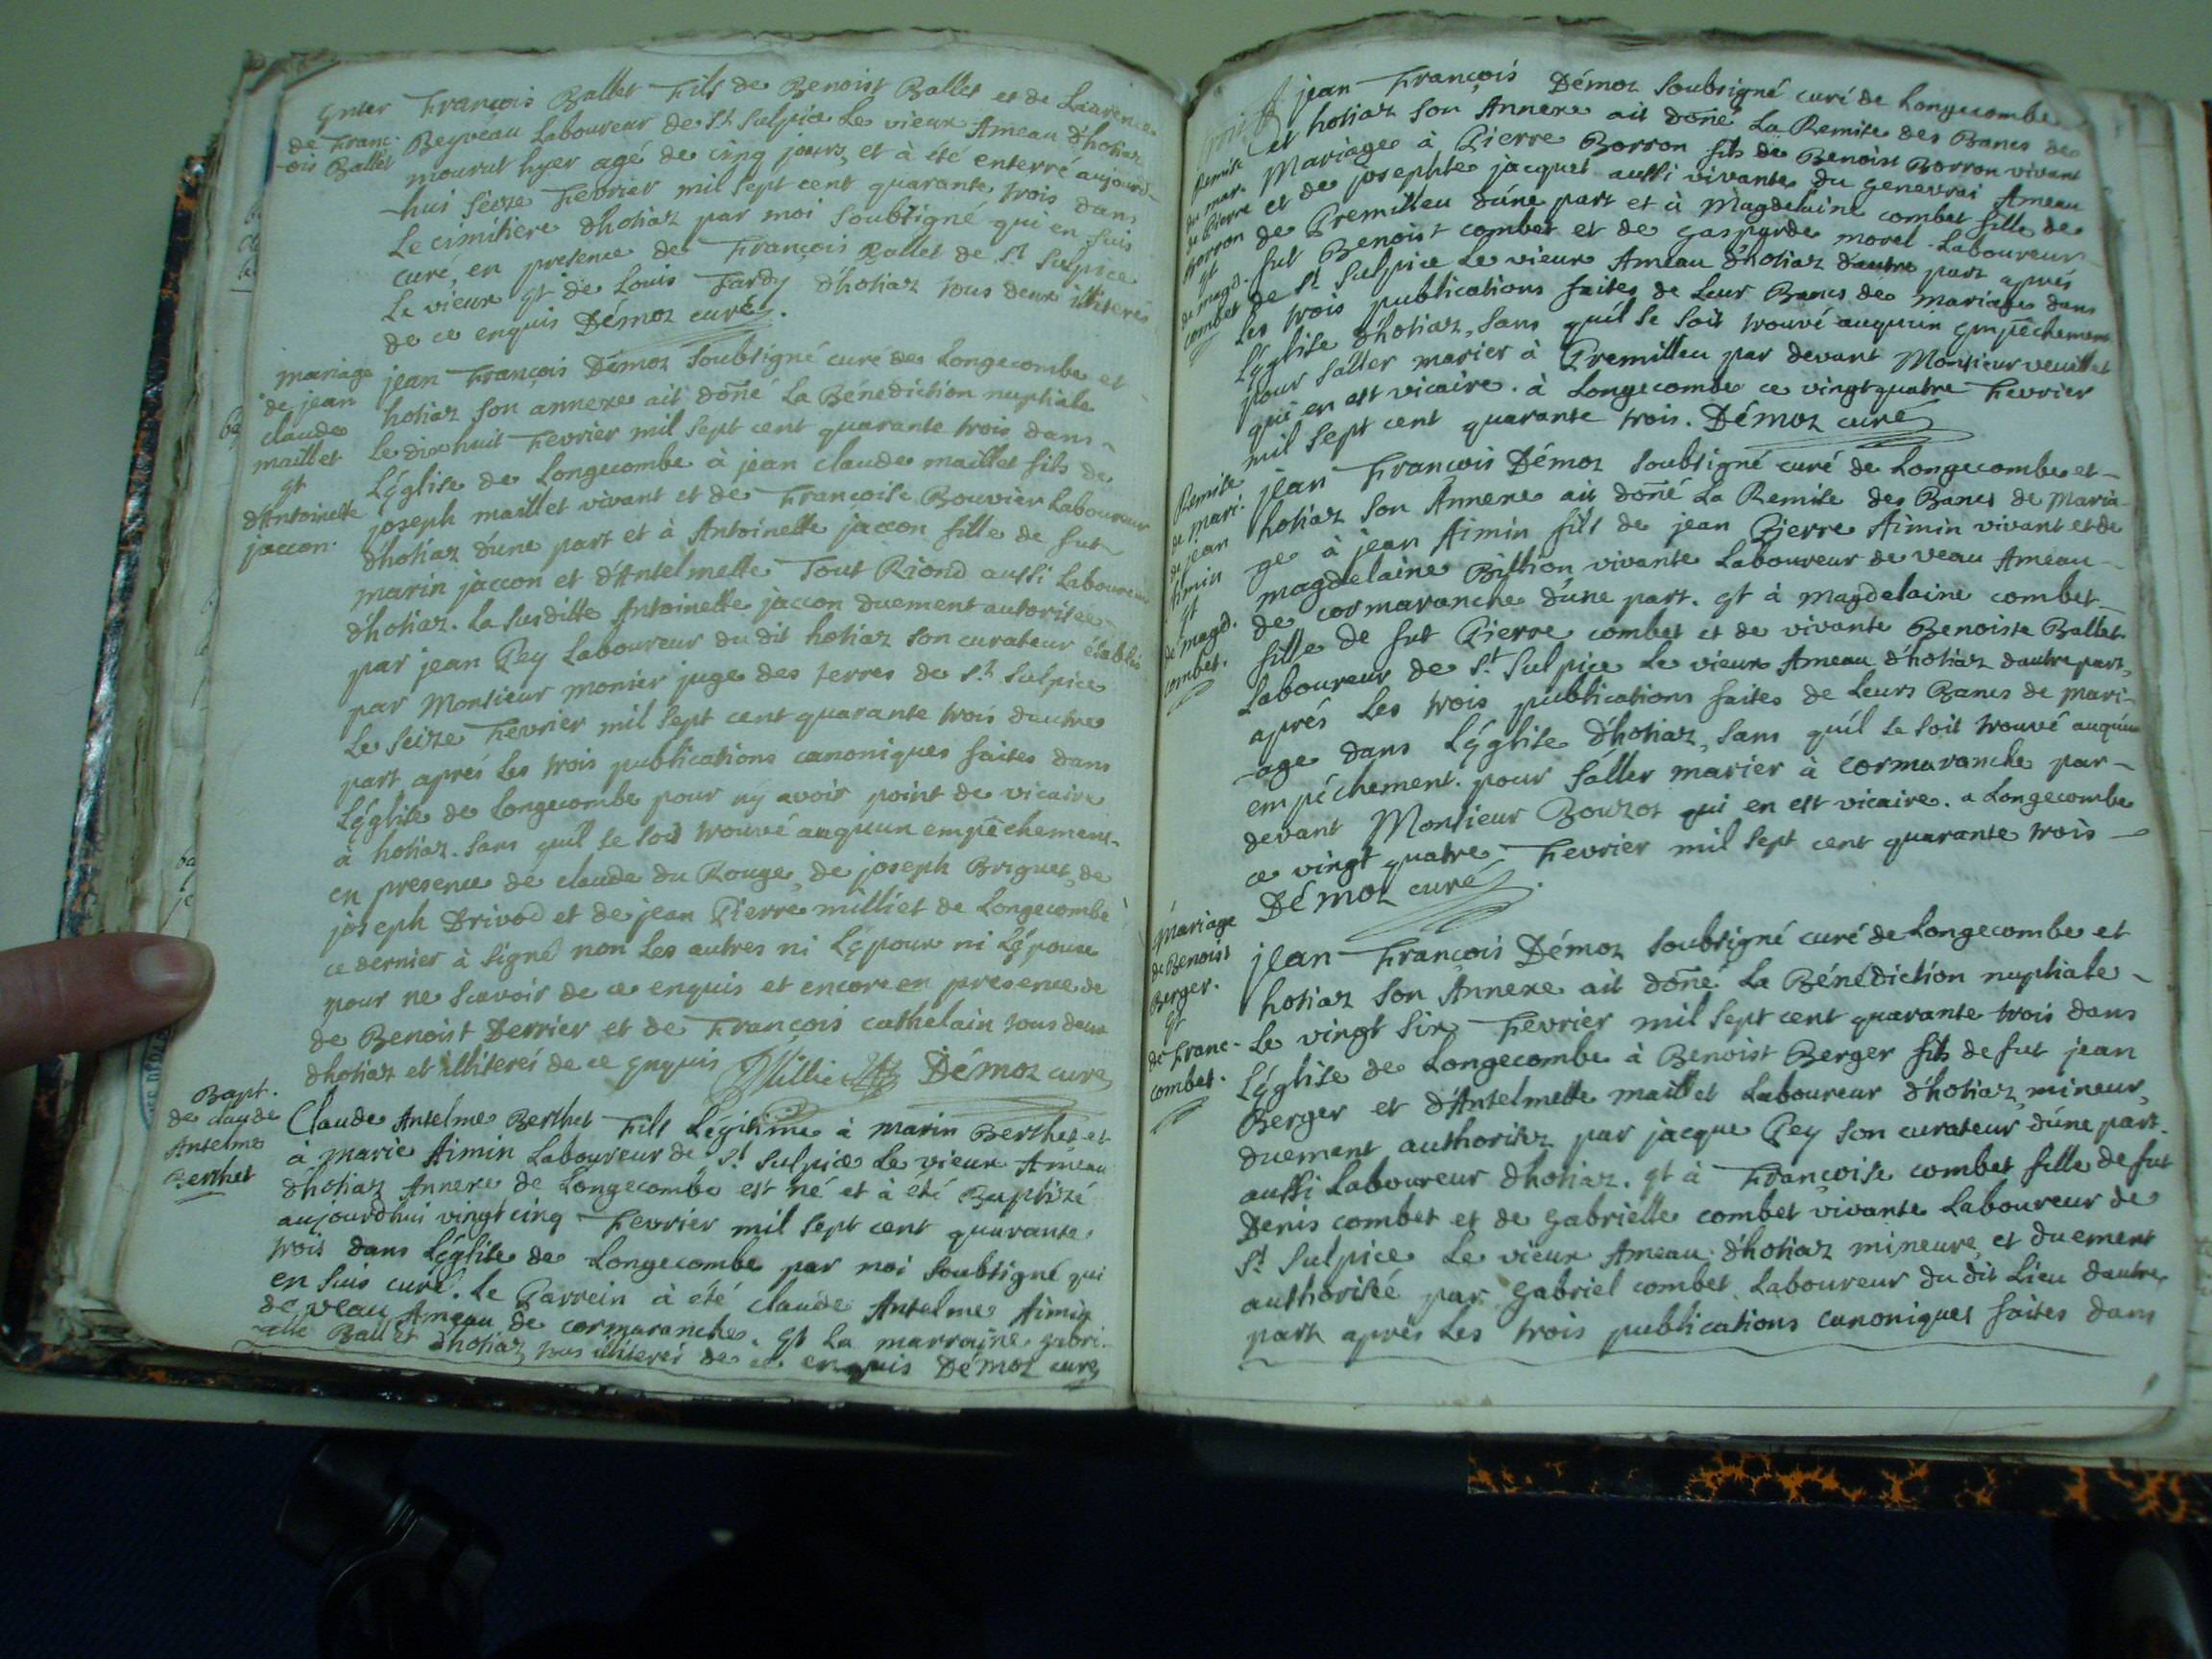 Enter
de Franc-
-ois Ballet
François Ballet Fils de Benoist Ballet et de Laurence
Beyveau Laboureur de St. Sulpice Le vieux Ameau d'hotiaz
mourut hyer agé de cinq jours, et à été enterré aujourd-
-hui séize Fevrier mil sept cent quarante trois dans
Le cimétiere dhotiaz par moi soubsigné qui en suis
curé, en presence de François Ballet de St. Sulpice
Le vieux et de Louis Tardy d'hotiaz tous deux illiterés
de ce enquis Démoz curé.
mariage
de jean
claude
maillet
et
d'Antoinette
jaccon.
jean François Démoz soubsigné curé de Longecombe et
hotiaz son annexe ait doñé La Bénediction nuptiale
Le dix huit Fevrier mil sept cent quarante trois dans
L'église de Longecombe à jean claude maillet fils de
joseph maillet vivant et de Françoise Bouvier Laboureur
dhotiaz d'une part et à Antoinette jaccon fille de fut
marin jaccon et d'Antelmette Tout Riond aussi Laboureur
d'hotiaz. La susditte Antoinette jaccon duement autorisée
par jean Pey Laboureur du dit hotiaz son curateur établi
par Monsieur monier juge des terres de St. Sulpice
Le seize Fevrier mil sept cent quarante trois dautre
part aprés Les trois publications canoniques faites dans
L'église de Longecombe pour n'y avoir point de vicaire
à hotiaz. sans quil se soit trouvé auqu'un empêchement.
en presence de claude du Rouge, de joseph Briguet, de
joseph Drivod et de jean Pierre milliet de Longecombe
ce dernier à signé non Les autres ni L'époux ni L'épouse
pour ne scavoir de ce enquis et encore en presence de
de Benoist Derrier et de François cathelain tous deux
dhotiaz et illiterés de ce enquis Milliet Démoz curé
Bapt.
de claude
Antelme
Berthet
Claude Antelme Berthet Fils Legitime à marin Berthet et
à marie Aimin Laboureur de St. Sulpice Le vieux Ameau
dhotiaz Annexe de Longecombe est né et à été Baptizé
aujourdhui vingt cinq Fevrier mil sept cent quarante
trois dans L'église de Longecombe par moi soubsigné qui
en suis curé. Le Parrein à été claude Antelme Aimin
de veau Ameau de cormaranche. Et La marraine gabri-
-elle Ballet dhotiaz tous illiterés de ce enquis Démoz curé
Remise
de mar.
de Pierre
Borron
et
de magd.
combet
jean François Démoz soubsigné curé de Longecombe
et hotiaz son Annexe ait doñé La Remise des Bancs de
Mariage à Pierre Borron fils de Benoist Borron vivant
et de josephte jacquet aussi vivante du genevrai Ameau
de Premillieu d'une part et à Magdelaine combet fille de
fut Benoist combet et de gasparde morel Laboureur
de St. Sulpice Le vieux Ameau d'hotiaz dautre part aprés
Les trois publications faites de Leur Bancs de mariage dans
L'église d'hotiaz, sans qu'il se soit trouvé auquun empêchement
pour s'aller marier à Premillieu par devant Monsieur
qui en est vicaire. à Longecombe ce vingt quatre Fevrier
mil sept cent quarante trois. Démoz curé
Remise
de mari.
de jean
Aimin
et
de magd.
combet.
jean François Démoz soubsigné curé de Longecombe et
hotiaz son Annexe ait doñé La Remise des Bancs de maria-
ge à jean Aimin fils de jean Pierre Aimin vivant et de
magdelaine Billion vivante Laboureur de veau Ameau
de cormaranche d'une part. Et à magdelaine combet
fille de fut Pierre combet et de vivante Benoiste Ballet
Laboureur de St. Sulpice Le vieux Ameau d'hotiaz dautre part,
aprés Les trois publications faites de Leurs Bancs de mari-
-age dans L'église d'hotiaz, sans qu'il se soit trouvé auqu'un
empêchement. pour s'aller marier à cormaranche par-
devant Monsieur Bouzot qui en est vicaire. a Longecombe
ce vingt quatre Fevrier mil sept cent quarante trois
Démoz curé.
Mariage
de Benoist
Berger.
et
de Franc-
combet.
jean François Démoz soubsigné curé de Longecombe et
hotiaz son Annexe ait doñé La Bénédiction nuptiale
Le vingt six Fevrier mil sept cent quarante trois dans
L'église de Longecombe à Benoist Berger fils de fut jean
Berger et d'Antelmette maillet Laboureur d'hotiaz, mineur,
duement authorisez par jacque Pey son curateur d'une part.
aussi Laboureur dhotiaz. Et à Françoise combet fille de fut
Denis combet et de gabrielle combet vivante Laboureur de
St. Sulpice Le vieux Ameau d'hotiaz mineure, et duement
authorisée par gabriel combet Laboureur du dit Lieu dautre
part aprés Les trois publications canoniques faites dans